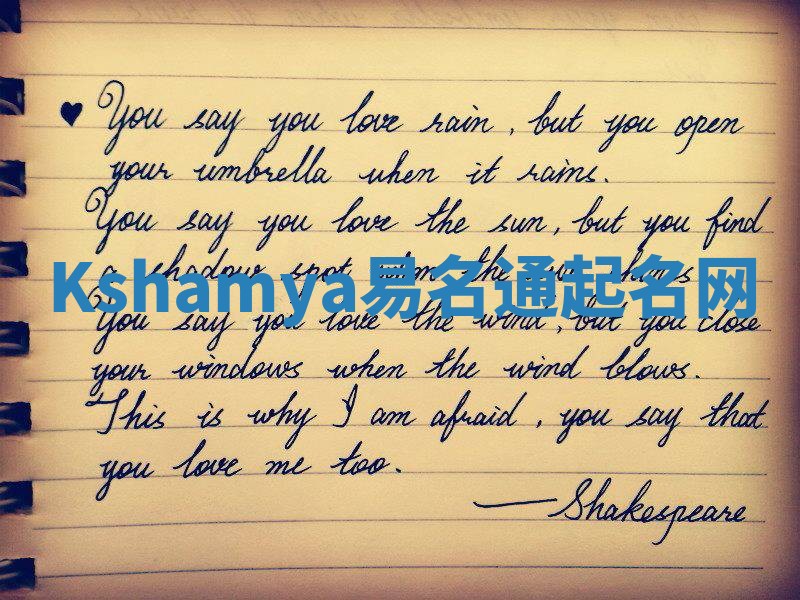 ♥ You say you love rain, but you open
your umbrella when it rains.
You say you love the sun, but you find
a shadow spot when the sun shines
Kshamya易名通起名网
You say you love the wind, but you close
your windows when the wind blows.
This is why I am afraid, you say that
you love me too.
— Shakespeare